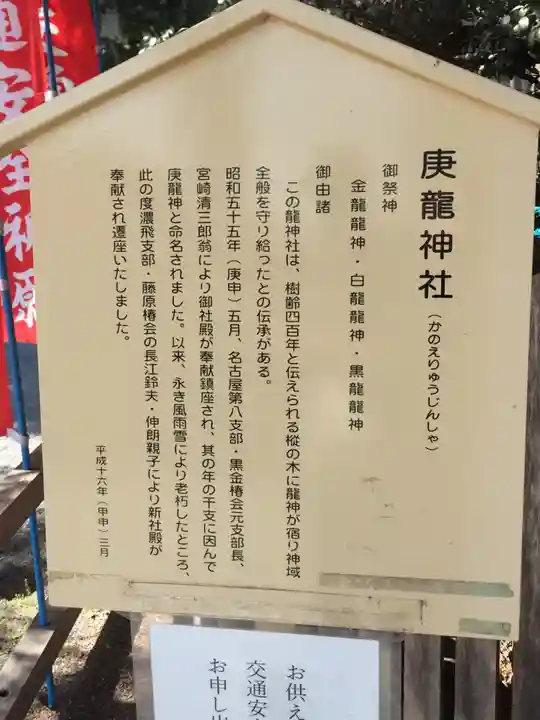 庚龍神社（かのえりゅうじんしゃ）
御祭神
金龍龍神・白龍龍神・黒龍龍神
御由諸
この龍神社は、樹齢四百年と伝えられる樅の木に龍神が宿り神域
全般を守り給ったとの伝承がある。
昭和五十五年（庚申）五月、名古屋第八支部・黒金椿会元支部長、
宮崎清三郎翁により御社殿が奉献鎮座され、其の年の干支に因んで
庚龍神と命名されました。以来、永き風雨雪により老朽したところ、
此の度濃飛支部・藤原椿会の長江鈴夫・伸朗親子により新社殿が
奉献され遷座いたしました。
平成十六年（甲申）三月
お供え
交通安
お申し出